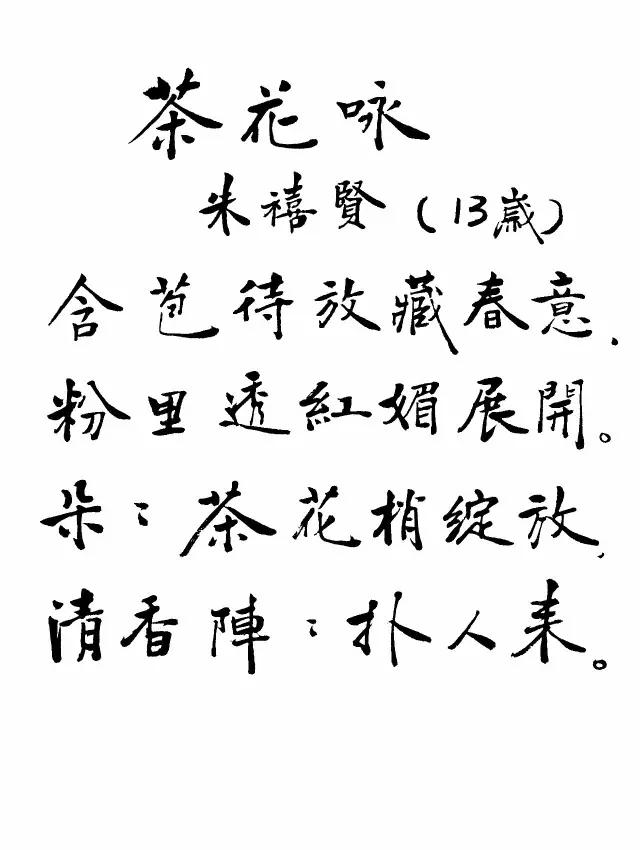 茶花咏
朱禧賢（13歲）
含苞待放藏春意，
粉里透紅媚展開。
朵：茶花梢綻放，
清香陣：扑人来。